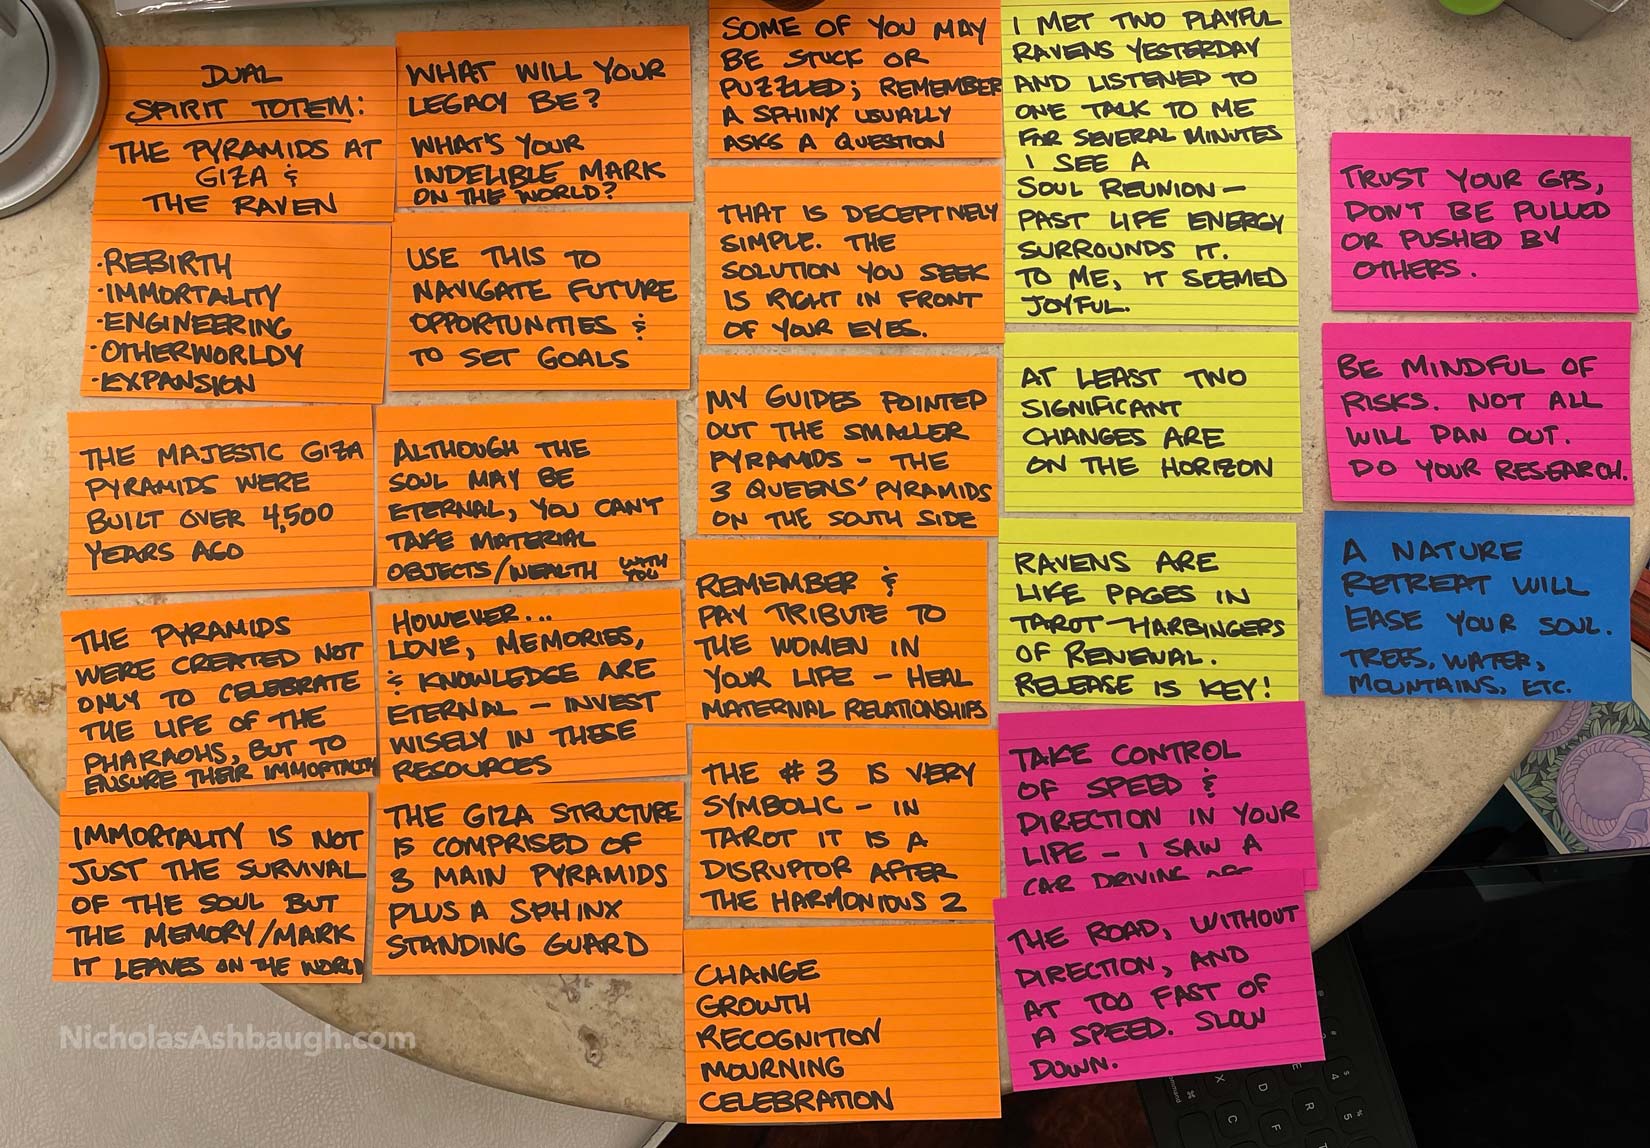 DUAL
SPIRIT TOTEM:
THE PYRAMIDS AT
GIZA &
THE RAVEN
·REBIRTH
·IMMORTALITY
·ENGINEERING
·OTHERWORLDY
·EXPANSION
THE MAJESTIC GIZA
PYRAMIDS WERE
BUILT OVER 4,500
YEARS AGO
THE PYRAMIDS
WERE CREATED NOT
ONLY TO CELEBRATE
THE LIFE OF THE
PHARAOHS, BUT TO
ENSURE THEIR IMMORTALITY
IMMORTALITY IS NOT
JUST THE SURVIVAL
OF THE SOUL BUT
THE MEMORY/MARK
IT LEAVES ON THE WORLD
WHAT WILL YOUR
LEGACY BE?
WHAT'S YOUR
INDELIBLE MARK
ON THE WORLD?
USE THIS TO
NAVIGATE FUTURE
OPPORTUNITIES &
TO SET GOALS
ALTHOUGH THE
SOUL MAY BE
ETERNAL, YOU CAN'T
TAKE MATERIAL
OBJECTS/WEALTH WITH
YOU
HOWEVER...
LOVE, MEMORIES,
& KNOWLEDGE ARE
ETERNAL - INVEST
WISELY IN THESE
RESOURCES
THE GIZA STRUCTURE
IS COMPRISED OF
3 MAIN PYRAMIDS
PLUS A SPHINX
STANDING GUARD
SOME OF YOU MAY
BE STUCK OR
PUZZLED; REMEMBER
A SPHINX USUALLY
ASKS A QUESTION
THAT IS DECEPTIVELY
SIMPLE. THE
SOLUTION YOU SEEK
IS RIGHT IN FRONT
OF YOUR EYES.
MY GUIDES POINTED
OUT THE SMALLER
PYRAMIDS - THE
3 QUEENS' PYRAMIDS
ON THE SOUTH SIDE
REMEMBER &
PAY TRIBUTE TO
THE WOMEN IN
YOUR LIFE - HEAL
MATERNAL RELATIONSHIPS
THE #3 IS VERY
SYMBOLIC - IN
TAROT IT IS A
DISRUPTOR AFTER
THE HARMONIOUS 2
CHANGE
GROWTH
RECOGNITION
MOURNING
CELEBRATION
I MET TWO PLAYFUL
RAVENS YESTERDAY
AND LISTENED TO
ONE TALK TO ME
FOR SEVERAL MINUTES
I SEE A
SOUL REUNION -
PAST LIFE ENERGY
SURROUNDS IT.
TO ME, IT SEEMED
JOYFUL.
AT LEAST TWO
SIGNIFICANT
CHANGES ARE
ON THE HORIZON
RAVENS ARE
LIKE PAGES IN
TAROT - HARBINGERS
OF RENEWAL.
RELEASE IS KEY!
TAKE CONTROL
OF SPEED &
DIRECTION IN YOUR
LIFE - I SAW A
CAR DRIVING OFF
THE ROAD, WITHOUT
DIRECTION, AND
AT TOO FAST OF
A SPEED. SLOW
DOWN.
TRUST YOUR GPS,
DON'T BE PULLED
OR PUSHED BY
OTHERS.
BE MINDFUL OF
RISKS. NOT ALL
WILL PAN OUT.
DO YOUR RESEARCH.
A NATURE
RETREAT WILL
EASE YOUR SOUL.
TREES, WATER,
MOUNTAINS, ETC.
NicholasAshbaugh.com
command
X
D
C
E
R
F
4
5